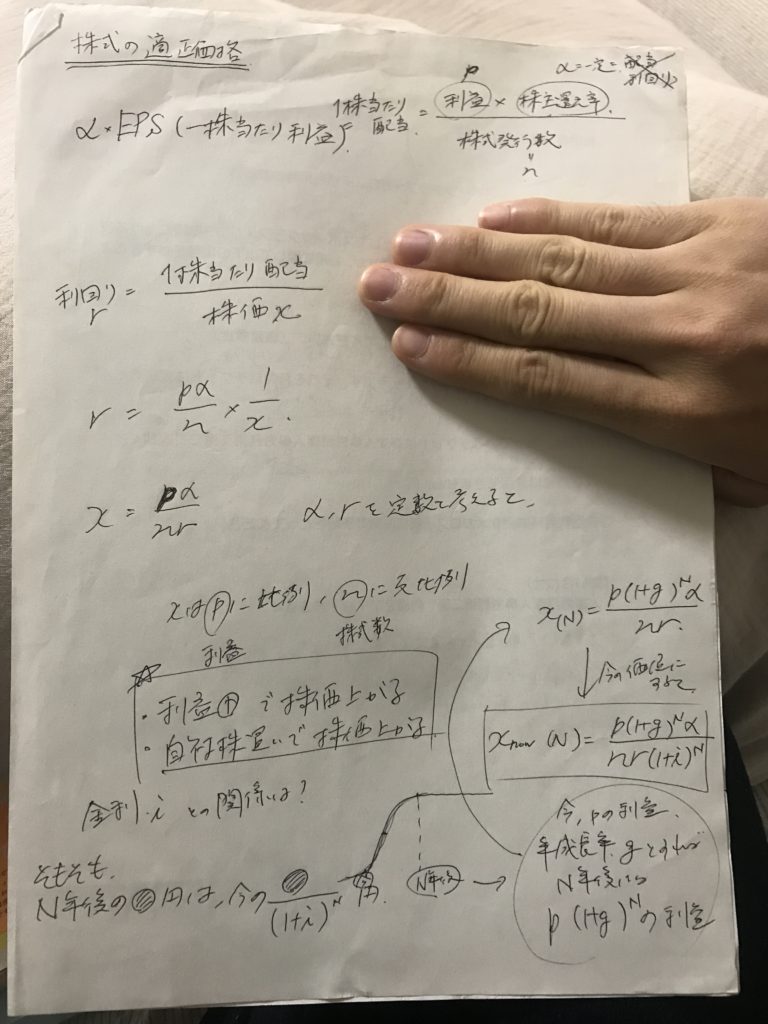 株式の適正価格
α = 一定 = 配当利回り
p
α × EPS (一株当たり利益)
1株当たり配当 = 利益 × 株主還元率 / 株式発行数
"
n
利回り = 1株当たり配当 / 株価 x
r
r = pα/n × 1/x.
x = pα/nr α, rを定数と考えると、
xはpに比例, nに反比例
利益 株式数
・利益⊕で株価上がる
・自社株買いで株価上がる
金利 i との関係は?
そもそも、
N年後の 円は、今の /(1+i)^N 円.
N年後 →
今、pの利益、
年成長率 gとすれば
N年後には
p(1+g)^Nの利益
x(N) = p(1+g)^N α / nr.
↓ 今の価値にすると
x now (N) = p(1+g)^N α / nr(1+i)^N